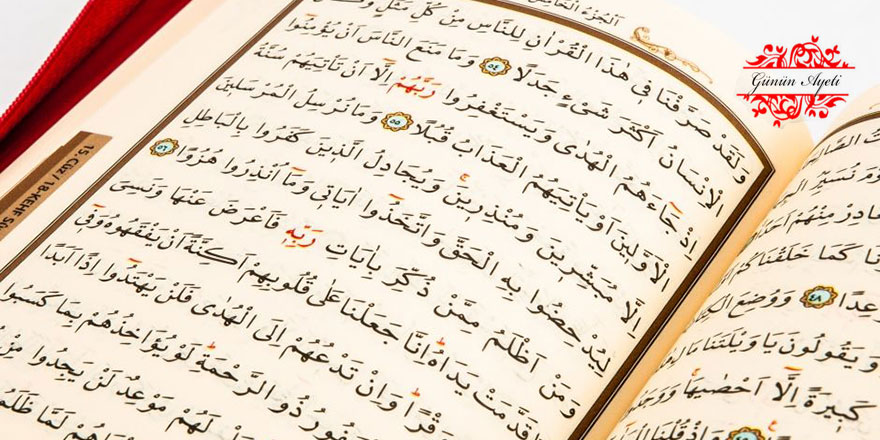 Günün Ayeti
اَلْجُزْءُ
وَلَقَدْ صَرَّفْنَا فٖى هٰذَا الْقُرْاٰنِ لِلنَّاسِ مِنْ كُلِّ مَثَلٍ
الْاِنْسَانُ اَكْثَرَ شَىْءٍ جَدَلًا ٥٤ وَمَا مَنَعَ النَّاسَ اَنْ يُؤْمِنُٓوا
اِذْ جَٓاءَهُمُ الْهُدٰى وَيَسْتَغْفِرُوا رَبَّهُمْ اِلَّٓا اَنْ تَأْتِيَهُمْ سُنَّةُ
الْاَوَّلٖينَ اَوْ يَأْتِيَهُمُ الْعَذَابُ قُبُلًا ٥٥ وَمَا نُرْسِلُ الْمُرْسَلٖينَ
اِلَّا مُبَشِّرٖينَ وَمُنْذِرٖينَ وَيُجَادِلُ الَّذٖينَ كَفَرُوا بِالْبَاطِلِ
لِيُدْحِضُوا بِهِ الْحَقَّ وَاتَّخَذُٓوا اٰيَاتٖى وَمَٓا اُنْذِرُوا هُزُوًا ٥٦
وَمَنْ اَظْلَمُ مِمَّنْ ذُكِّرَ بِاٰيَاتِ رَبِّهٖ فَاَعْرَضَ عَنْهَا وَنَسِىَ
قَدَّمَتْ يَدَاهُ اِنَّا جَعَلْنَا عَلٰى قُلُوبِهِمْ اَكِنَّةً اَنْ يَفْقَهُوهُ وَفٖٓى
وَقْرًا وَاِنْ تَدْعُهُمْ اِلَى الْهُدٰى فَلَنْ يَهْتَدُٓوا اِذًا اَبَدًا
ذُو الرَّحْمَةِ لَوْ يُؤَاخِذُهُمْ بِمَا كَسَبُوا
لَهُمْ مَوْعِدٌ لَنْ يَجِدُوا مِنْ
لَمَّا
15. CÜZ / 18-KEHF
نُسَيِّرُ
مِنْهُمْ
كَمَا خَلَقْنَاكُمْ
٤٨ وَوُضِعَ
وَيَقُولُونَ يَا وَيْلَتَنَا مَا
كَبٖيرَةً اِلَّٓا اَحْصٰيهَا
وَاِذْ قُلْنَا